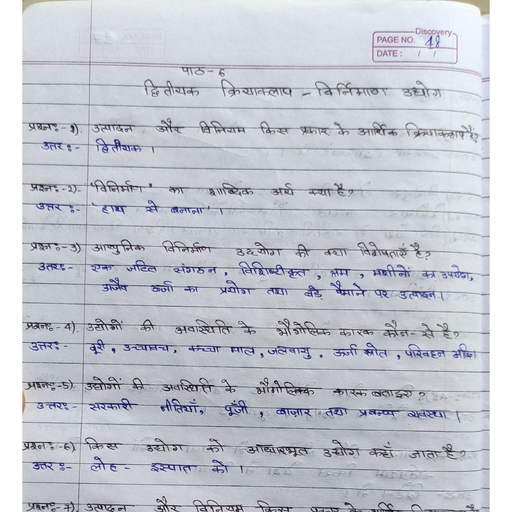 Discovery
PAGE NO. 48
DATE: / /
पाठ-6
द्वितीयक क्रियाकलाप - विर्निमाण उद्योग
प्रश्नः-1). उत्पादन और विनियम किस प्रकार के आर्थिक क्रियाकलाप है?
उत्तरः- द्वितीयक ।
प्रश्नः-2). 'विनिर्माण' का शाब्दिक अर्थ क्या है?
उत्तरः- 'हाथ से बनाना' ।
प्रश्नः-3) आधुनिक विनिर्माण उद्योग की क्या विशेषताएँ है?
उत्तरः- एक जटिल संगठन, विशिष्टीकृत, श्रम, मशीनों का उपयोग,
अजैव ऊर्जा का प्रयोग तथा बड़े पैमाने पर उत्पादन।
प्रश्नः-4) उद्योगों की अवस्थिति के भौगोलिक कारक कौन-से है?
उत्तरः- दूरी, उच्चावच, कच्चा माल, जलवायु, ऊर्जा स्रोत, परिवहन
प्रश्नः-5) उद्योगों की अवस्थिति के भौगोलिक कारक बताइए?
उत्तरः- सरकारी नीतियाँ, पूँजी, बाजार तथा प्रबन्ध व्यवस्था ।
प्रश्नः-6) किस उद्योग को आधारभूत उद्योग कहाँ जाता है?
उत्तरः- लोह-इस्पात को ।
प्रश्नः-7) उत्पादन और विनियम किस